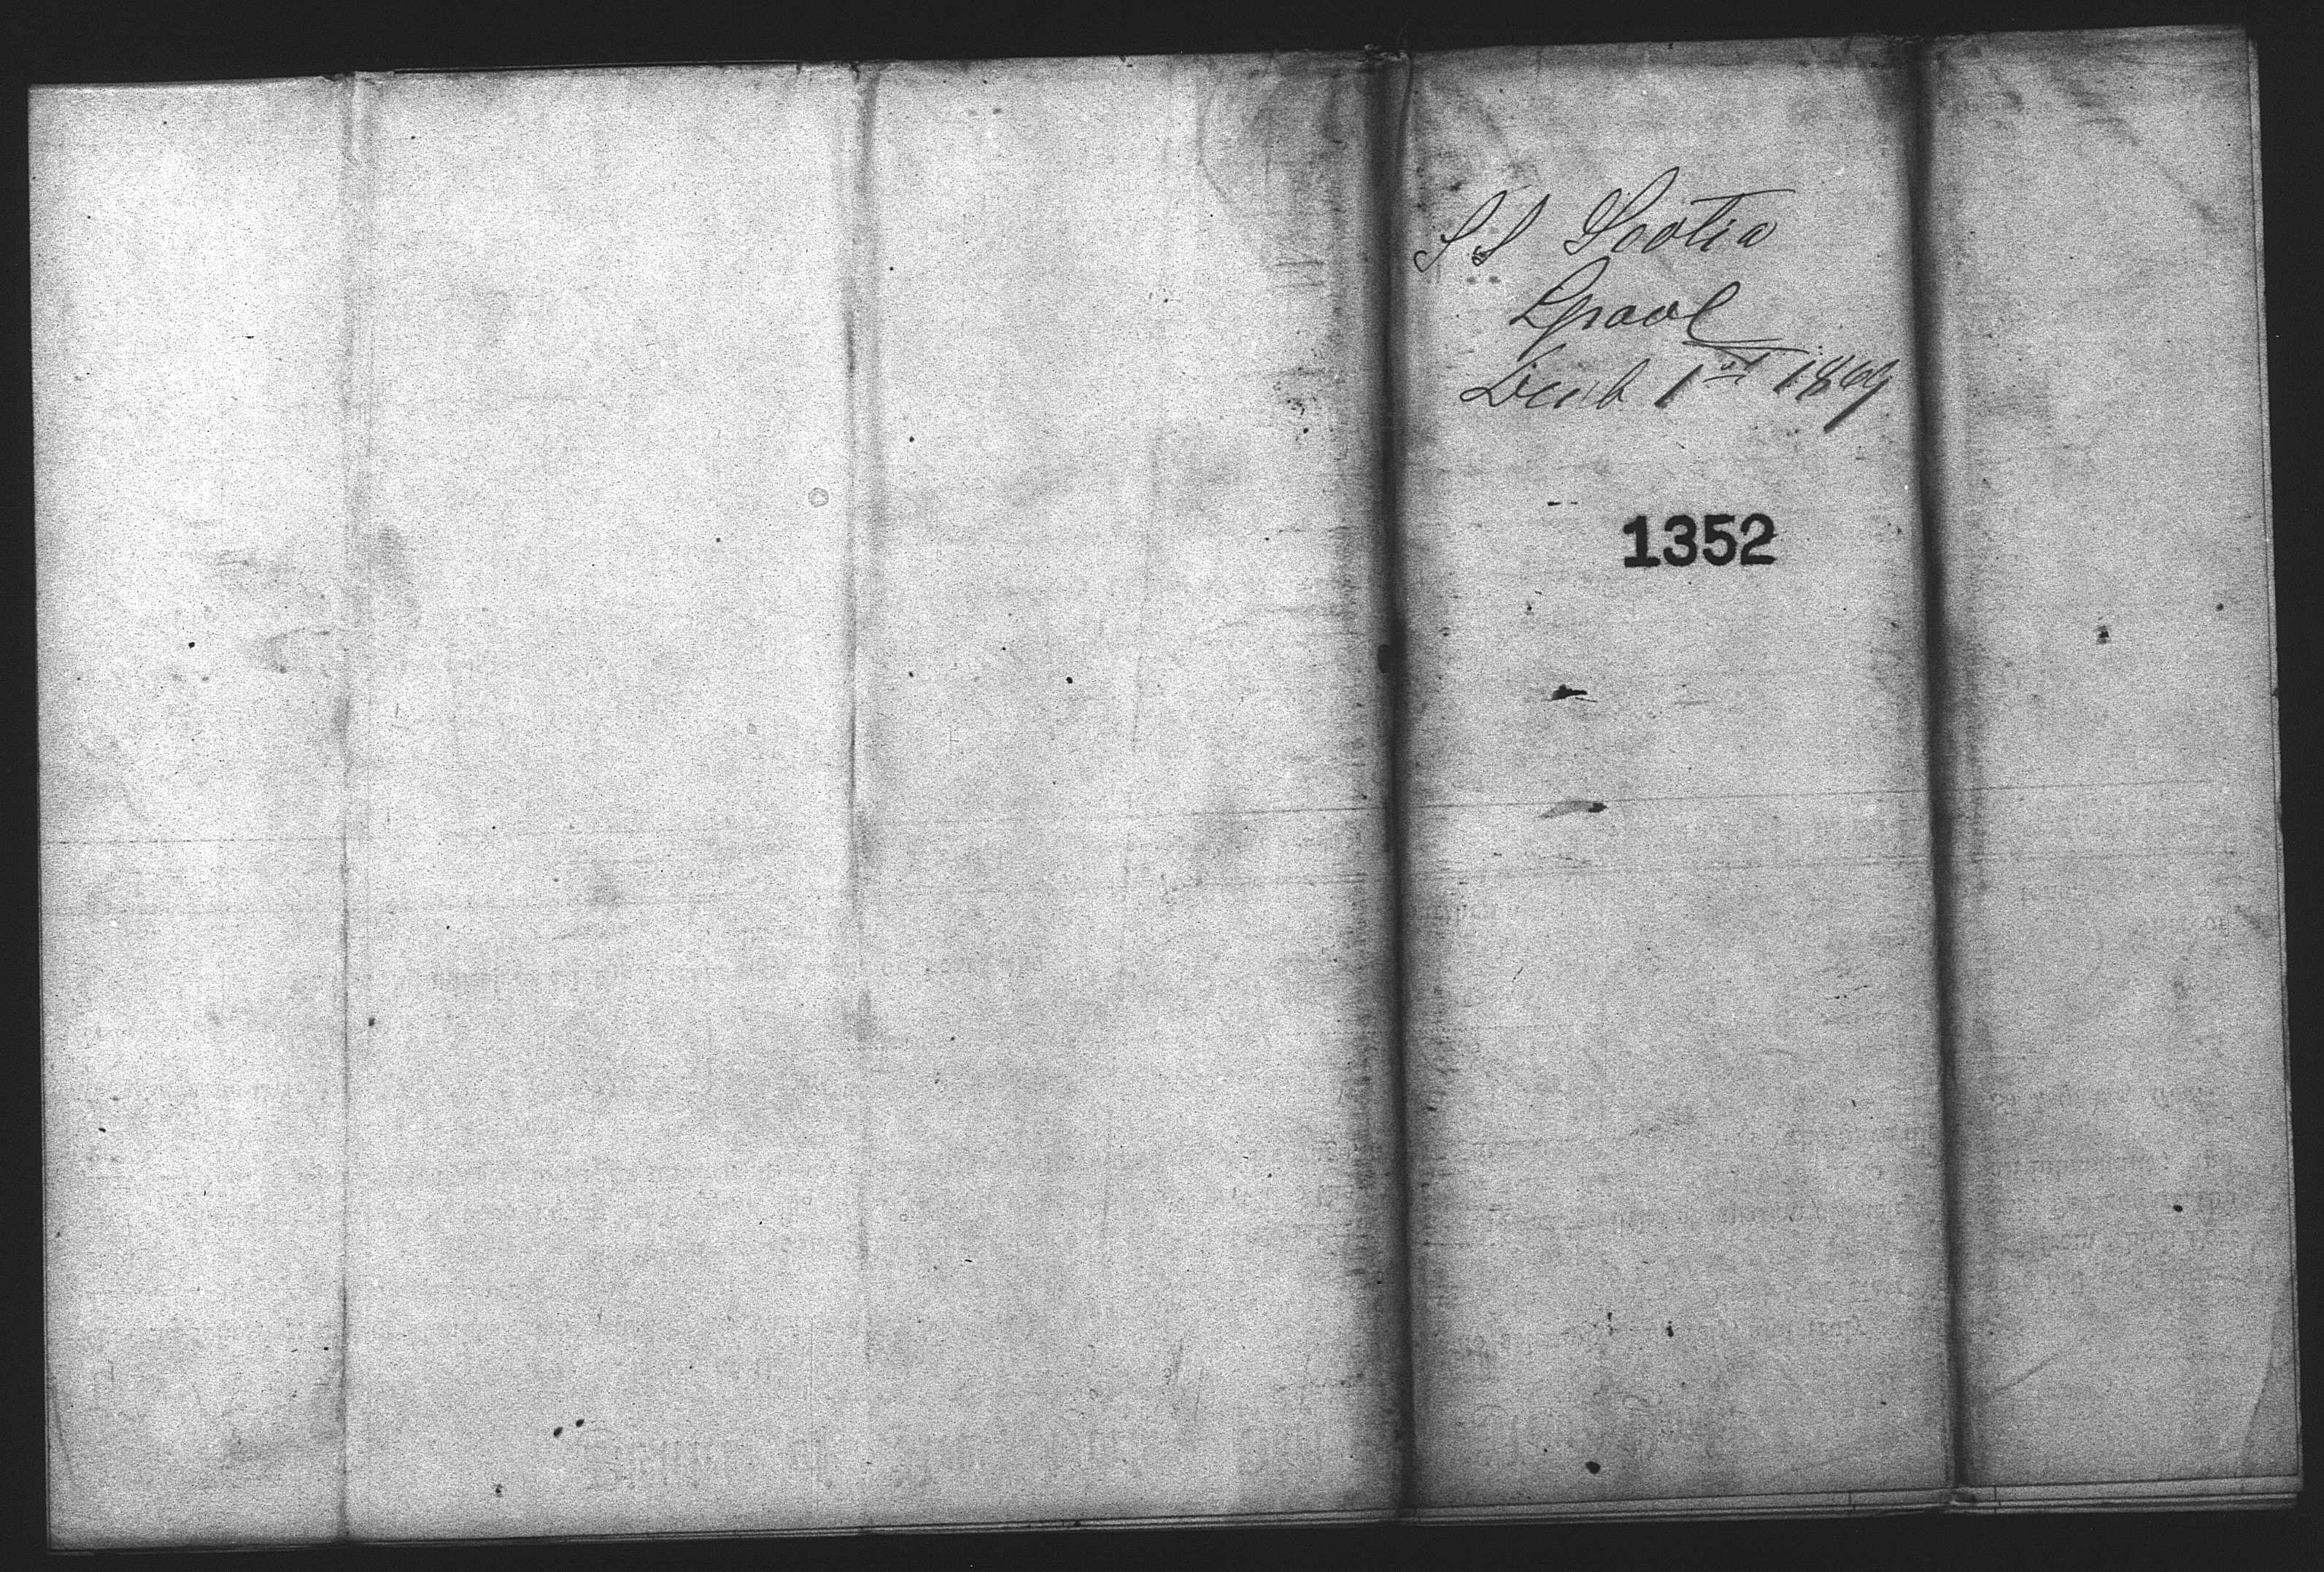 SS Scotia
Lpool
Decb 1st 1869
1352